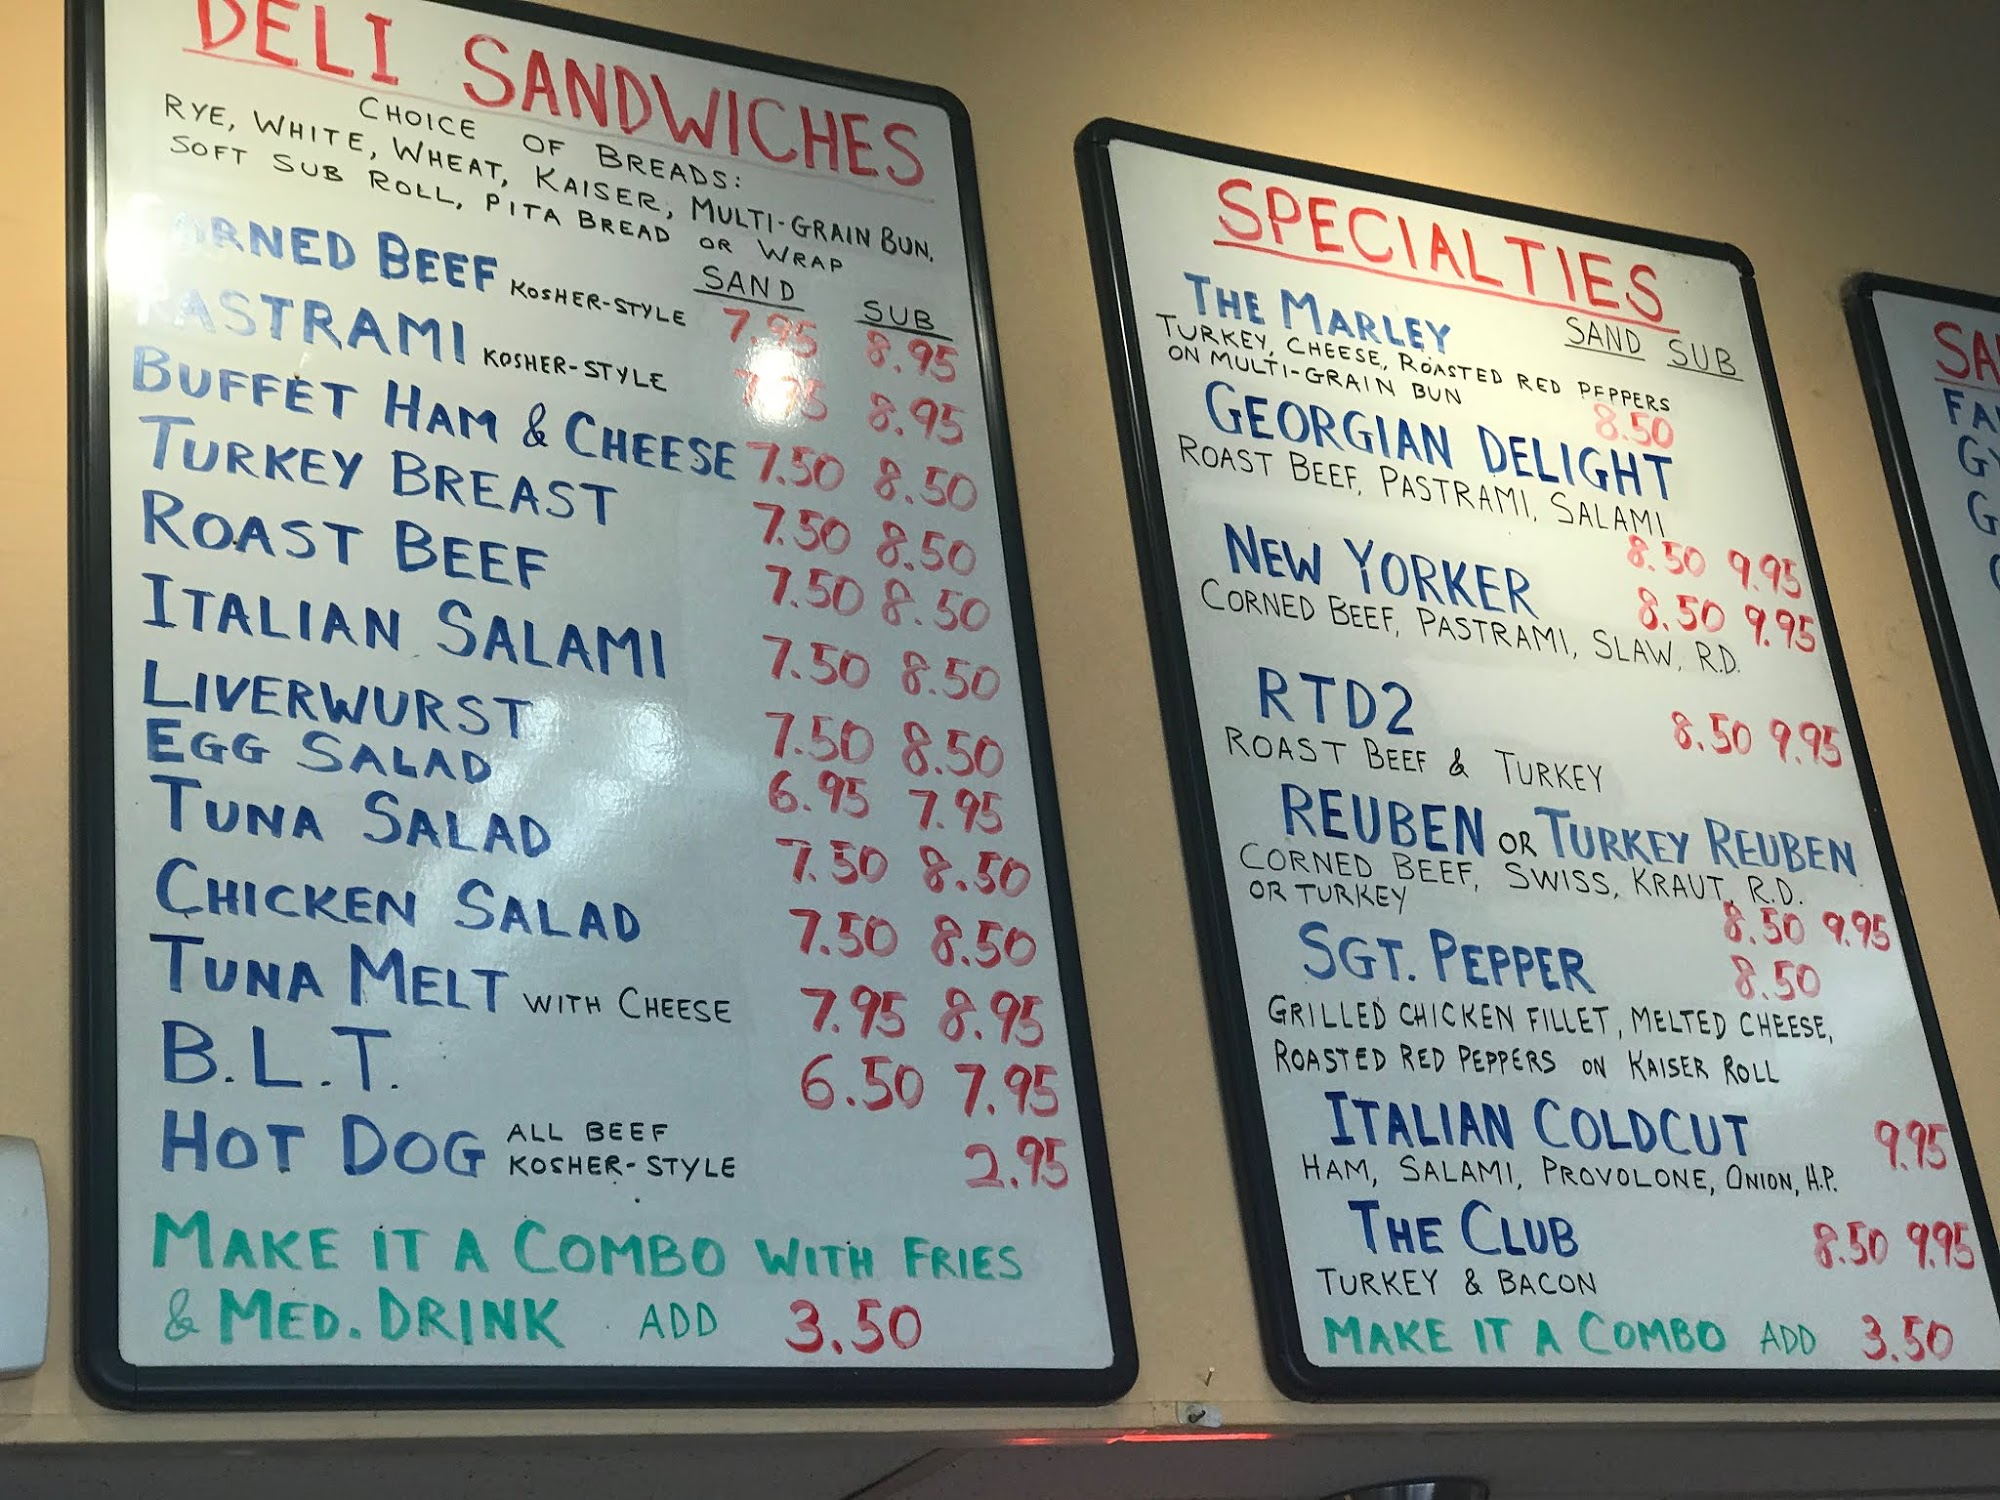 DELI SANDWICHES
CHOICE OF BREADS:
RYE, WHITE, WHEAT, KAISER, MULTI-GRAIN BUN,
SOFT SUB ROLL, PITA BREAD OR WRAP
SAND SUB
CORNED BEEF KOSHER-STYLE 7.95 8.95
PASTRAMI KOSHER-STYLE 7.95 8.95
BUFFET HAM & CHEESE 7.50 8.50
TURKEY BREAST 7.50 8.50
ROAST BEEF 7.50 8.50
ITALIAN SALAMI 7.50 8.50
LIVERWURST 7.50 8.50
EGG SALAD 6.95 7.95
TUNA SALAD 7.50 8.50
CHICKEN SALAD 7.50 8.50
TUNA MELT WITH CHEESE 7.95 8.95
B.L.T. 6.50 7.95
HOT DOG ALL BEEF KOSHER-STYLE 2.95
MAKE IT A COMBO WITH FRIES
& MED. DRINK ADD 3.50
SPECIALTIES
SAND SUB
THE MARLEY
TURKEY, CHEESE, ROASTED RED PEPPERS
ON MULTI-GRAIN BUN 8.50
GEORGIAN DELIGHT
ROAST BEEF, PASTRAMI, SALAMI
8.50 9.95
NEW YORKER 8.50 9.95
CORNED BEEF, PASTRAMI, SLAW, R.D.
RTD2 8.50 9.95
ROAST BEEF & TURKEY
REUBEN OR TURKEY REUBEN
CORNED BEEF, SWISS, KRAUT, R.D.
OR TURKEY 8.50 9.95
SGT. PEPPER 8.50
GRILLED CHICKEN FILLET, MELTED CHEESE,
ROASTED RED PEPPERS ON KAISER ROLL
ITALIAN COLDCUT 9.95
HAM, SALAMI, PROVOLONE, ONION, H.P.
THE CLUB 8.50 9.95
TURKEY & BACON
MAKE IT A COMBO ADD 3.50